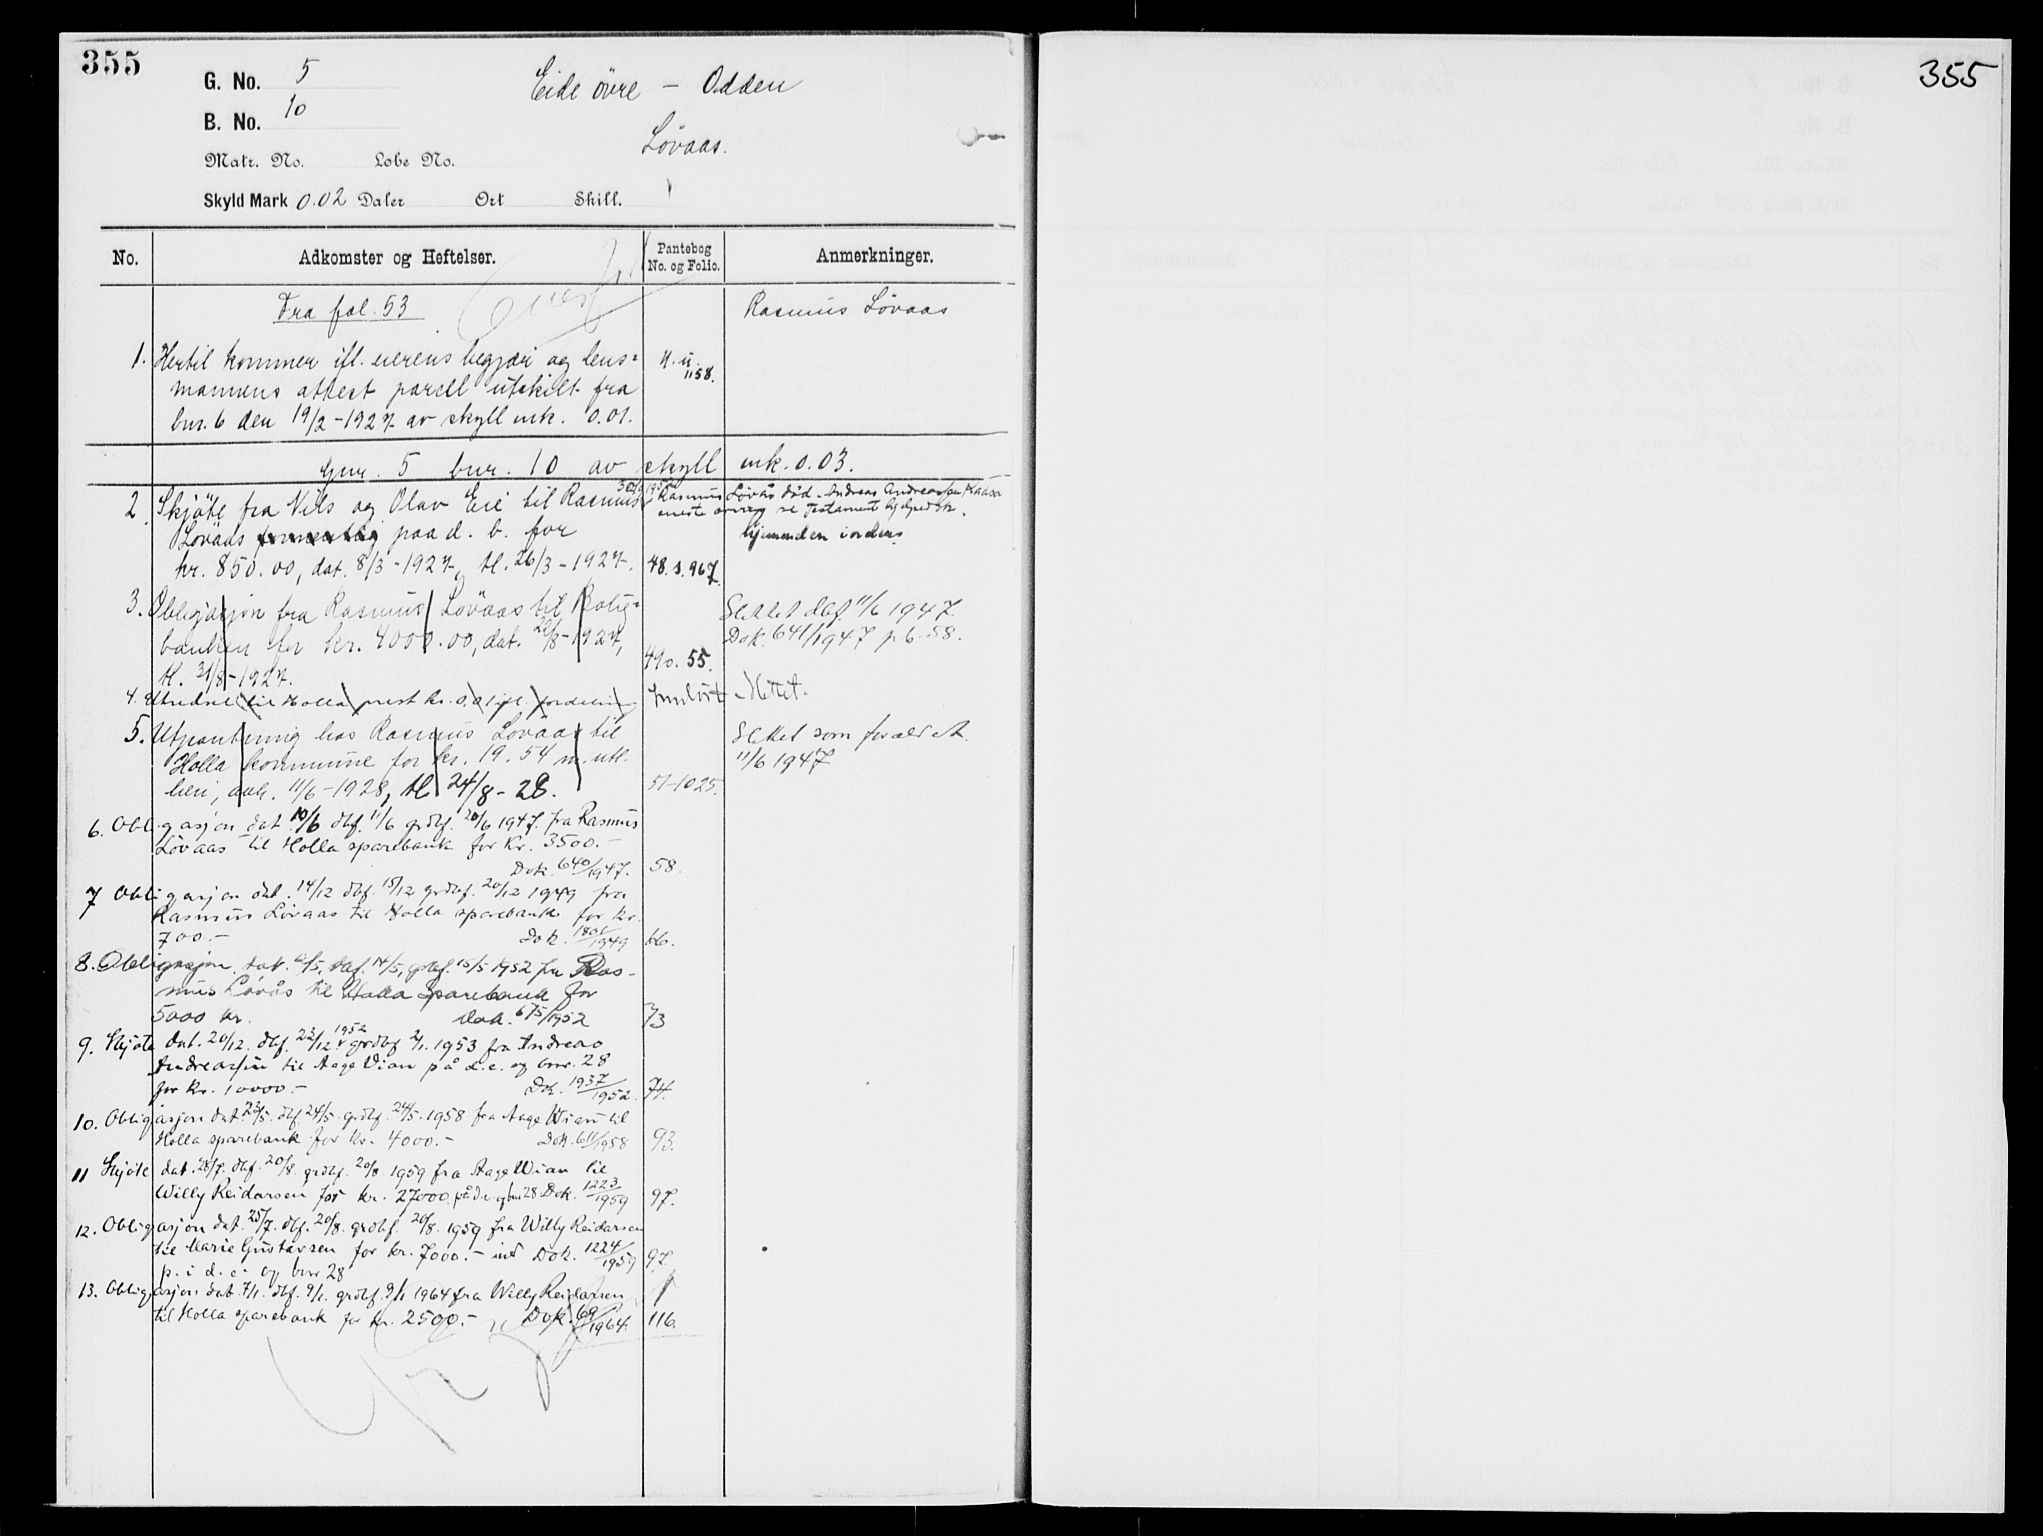 355
G. No. 5
Eide övre - Odden
B. No. 10
Lövaas.
Matr. No. Lobe No.
Skyld Mark 0.02 Daler Ort Skill.
No. Adkomster og Heftelser. Pantebog No. og Folio. Anmerkninger.
Fra fol. 53
Rasmus Lövaas
1. Hertil kommer ifl. eierens begjær og lens=
mannens attest parsell utskilt fra
bnr. 6 den 19/2-1927 av skyll mk. 0.01.
1158.
Gnr. 5 bnr. 10 av skyll mk. 0.03.
2. Skjöte fra Nils og Olav Eie til Rasmus
Lövaas paa d. b. for
kr. 850.00, dat. 8/3-1927, tl. 26/3-1927. 48. s. 967.
Rasmus Løvås död - Andreas Andreassen
eneste arving se Testament
hjemmelen i orden.
3. Obligasjon fra Rasmus Lövaas til Bolig=
banken for kr. 4000.00, dat. 20/8-1927,
tl. 31/8-1927. 49 s. 55.
Slettet dbf 11/6 1947.
Dok. 641/1947 pb. 58.
4. til Holla prest kr. Innløst Slettet.
5. Utpantning hos Rasmus Lövaas til
Holla kommune for kr. 19.54 m. utl.
hen, avh. 11/6-1928, tl. 24/8-28. 51-1025.
Slettet som foreldet
11/6 1947
6. Obligasjon dat 10/6 dbf. 11/6 grdbf. 20/6 1947. fra Rasmus
Løvaas til Holla sparebank for kr. 3500.-
Dok. 640/1947. 58.
7 Obligasjon dat. 14/12 dbf. 15/12 grdbf. 20/12 1949 fra
Rasmus Løvaas til Holla sparebank for kr.
700.- Dok. 1801/1949 66.
8. Obligasjon dat. 12/5, dbf. 14/5, grdbf. 15/5 1952 fra Ras-
mus Løvås til Holla Sparebank for
5000 kr. Dok. 675/1952 73
9. Skjöte dat. 20/12. dbf. 22/12 1952 grdbf 2/1. 1953 fra Andreas
Andreassen til Aage Wian på d.e. og bnr. 28
for kr. 10000.- Dok. 1937/1952. 74.
10. Obligasjon dat. 23/5. dbf. 24/5. grdbf. 24/5. 1958 fra Aage Wian til
Holla sparebank for kr. 4000.- Dok. 611/1958 93.
11 Skjöte dat. 28/7. dbf. 20/8. grdbf. 20/8 1959 fra Aage Wian til
Willy Reidarsen for kr. 27000 på d.e. og bnr 28 Dok. 1223/1959 97.
12. Obligasjon dat. 25/7. dbf. 20/8. grdbf. 20/8. 1959 fra Willy Reidarsen
til Marie Gustavsen for kr. 7000.- med Dok. 1224/1959 97.
p. i d. e. og bnr 28
13. Obligasjon dat. 7/1. dbf. 9/1. grdbf. 9/1 1964 fra Willy Reidarsen
til Holla sparebank for kr. 2500.- Dok. 69/1964. 116.
355